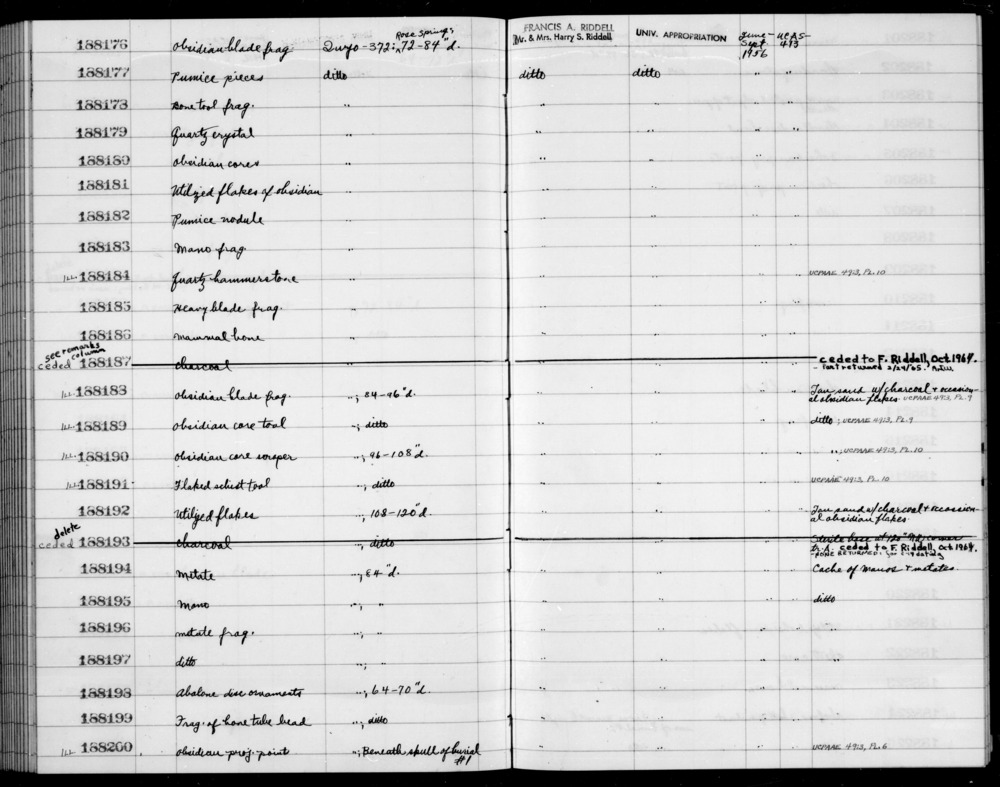 188176 obsidian blade frag. Inyo-372; Rose Springs; 72-84"d. FRANCIS A. RIDDELL Mr. & Mrs. Harry S. Riddell UNIV. APPROPRIATION June-Sept. 1956 UCAS-493
188177 Pumice pieces ditto ditto ditto " "
188178 Bone tool frag. " " " " "
188179 Quartz crystal " " " " "
188180 obsidian cores " " " " "
188181 Utilized flakes of obsidian " " " " "
188182 Pumice nodule " " " " "
188183 Mano frag. " " " " "
ILL. 188184 Quartz hammerstone " " " " " UCPAAE 49:3, PL. 10
188185 Heavy blade frag. " " " " "
188186 Mammal bone " " " " "
see remarks column
ceded 188187 charcoal ceded to F. Riddell, Oct. 1964.
- Part returned 2/24/65.
ILL. 188188 obsidian blade frag. "; 84-96"d. " " " " Tan sand w/charcoal + occasional obsidian flakes. UCPAAE 49:3, PL. 9
ILL. 188189 obsidian core tool "; ditto " " " " ditto; UCPAAE 49:3, PL. 9
ILL. 188190 obsidian core scraper "; 96-108"d. " " " " "; UCPAAE 49:3, PL. 10
ILL. 188191 Flaked schist tool "; ditto " " " " UCPAAE 49:3, PL. 10
188192 Utilized flakes "; 108-120"d. " " " " Tan sand w/charcoal + occasional obsidian flakes.
delete
ceded 188193 charcoal "; ditto Sterile base at 120" Nd. corner
ceded to F. Riddell, Oct. 1964.
- NONE RETURNED:
188194 Metate "; 84"d. " " " " Cache of manos + metates
188195 Mano "; " " " " " ditto
188196 metate frag. "; " " " " " "
188197 ditto "; " " " " " "
188198 Abalone disc ornaments "; 64-70"d. " " " "
188199 Frag. of bone tube bead "; ditto " " " "
ILL 188200 obsidian proj. point "; Beneath skull of burial #1 " " " " UCPAAE 49:3, PL. 6